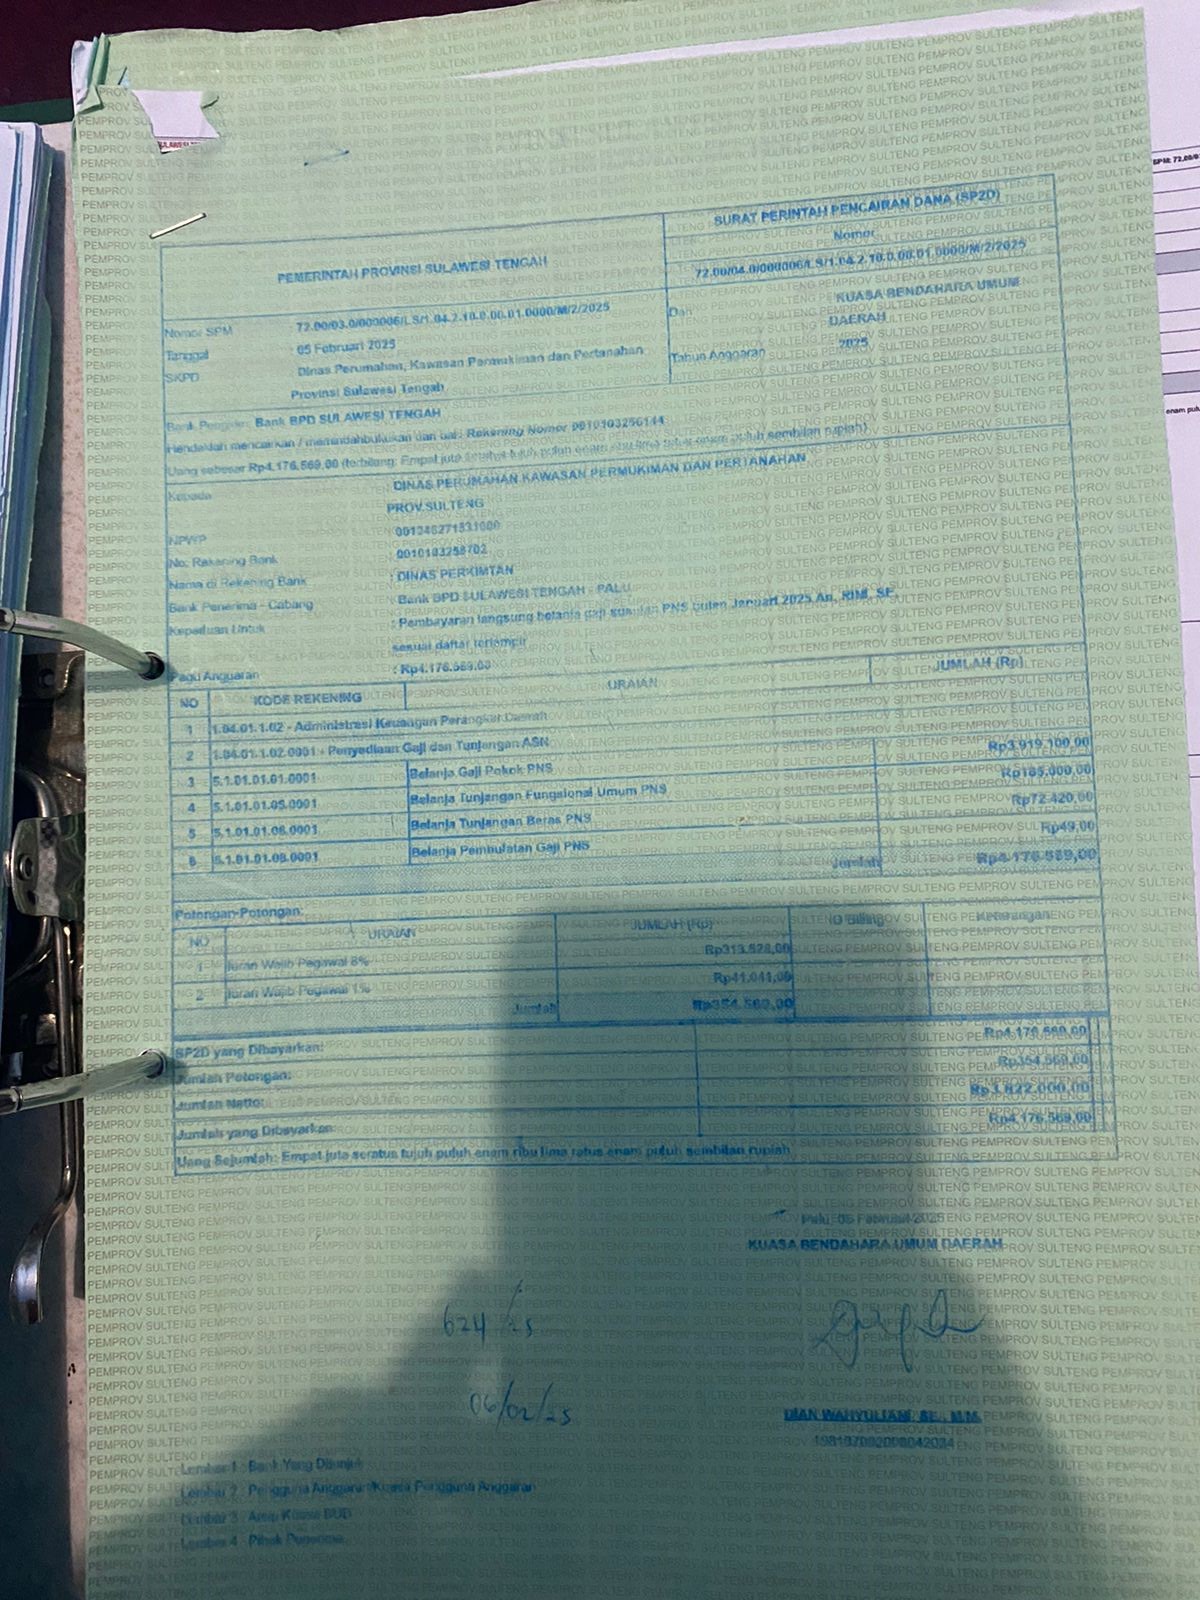 SURAT PERINTAH PENCAIRAN DANA (SP2D)
PEMERINTAH PROVINSI SULAWESI TENGAH
Nomor
72.00/04.0/000006/LS/1.04.2.10.0.00.01.0000/M/2/2025
Nomor SPM : 72.00/03.0/000006/LS/1.04.2.10.0.00.01.0000/M/2/2025
Tanggal : 05 Februari 2025
SKPD : Dinas Perumahan, Kawasan Permukiman dan Pertanahan
Provinsi Sulawesi Tengah
Dari : KUASA BENDAHARA UMUM
DAERAH
Tahun Anggaran : 2025
Bank Pengirim : Bank BPD SULAWESI TENGAH
Hendaklah mencairkan / memindahbukukan dari bak Rekening Nomor 0010103256144
Uang sebesar Rp4.176.569,00 (terbilang: Empat juta seratus tujuh puluh enam ribu lima ratus enam puluh sembilan rupiah)
Kepada : DINAS PERUMAHAN KAWASAN PERMUKIMAN DAN PERTANAHAN
PROV.SULTENG
NPWP : 001246271831000
No. Rekening Bank : 0010103258702
Nama di Rekening Bank : DINAS PERKIMTAN
Bank Penerima - Cabang : Bank BPD SULAWESI TENGAH - PALU
Keperluan Untuk : Pembayaran langsung belanja gaji susulan PNS bulan Januari 2025 An. RIMI, SE,
sesuai daftar terlampir
Pagu Anggaran : Rp4.176.569,00
NO KODE REKENING URAIAN JUMLAH (Rp)
1 1.04.01.1.02 - Administrasi Keuangan Perangkat Daerah
2 1.04.01.1.02.0001 - Penyediaan Gaji dan Tunjangan ASN
3 5.1.01.01.01.0001 Belanja Gaji Pokok PNS Rp3.919.100,00
4 5.1.01.01.05.0001 Belanja Tunjangan Fungsional Umum PNS Rp185.000,00
5 5.1.01.01.06.0001 Belanja Tunjangan Beras PNS Rp72.420,00
6 5.1.01.01.08.0001 Belanja Pembulatan Gaji PNS Rp49,00
Jumlah Rp4.176.569,00
Potongan-Potongan:
NO URAIAN JUMLAH (Rp) ID Billing Keterangan
1 Iuran Wajib Pegawai 8% Rp313.528,00
2 Iuran Wajib Pegawai 1% Rp41.041,00
Jumlah Rp354.569,00
SP2D yang Dibayarkan: Rp4.176.569,00
Jumlah Potongan: Rp354.569,00
Jumlah Netto: Rp3.822.000,00
Jumlah yang Dibayarkan Rp4.176.569,00
Uang Sejumlah: Empat juta seratus tujuh puluh enam ribu lima ratus enam puluh sembilan rupiah
Palu, 05 Februari 2025
KUASA BENDAHARA UMUM DAERAH
624/25
06/02/25
DIAN WAHYULIANI, SE., M.M.
Lembar 1 : Bank Yang Ditunjuk
Lembar 2 : Pengguna Anggaran/Kuasa Pengguna Anggaran
Lembar 3 : Arsip Kuasa BUD
Lembar 4 : Pihak Penerima
PEMPROV SULTENG